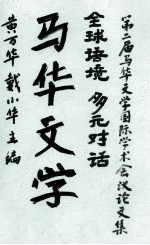 第二届马华文学国际学术会议论文集
全球语境 多元对话
马华文学
黄万华 戴小华 主编